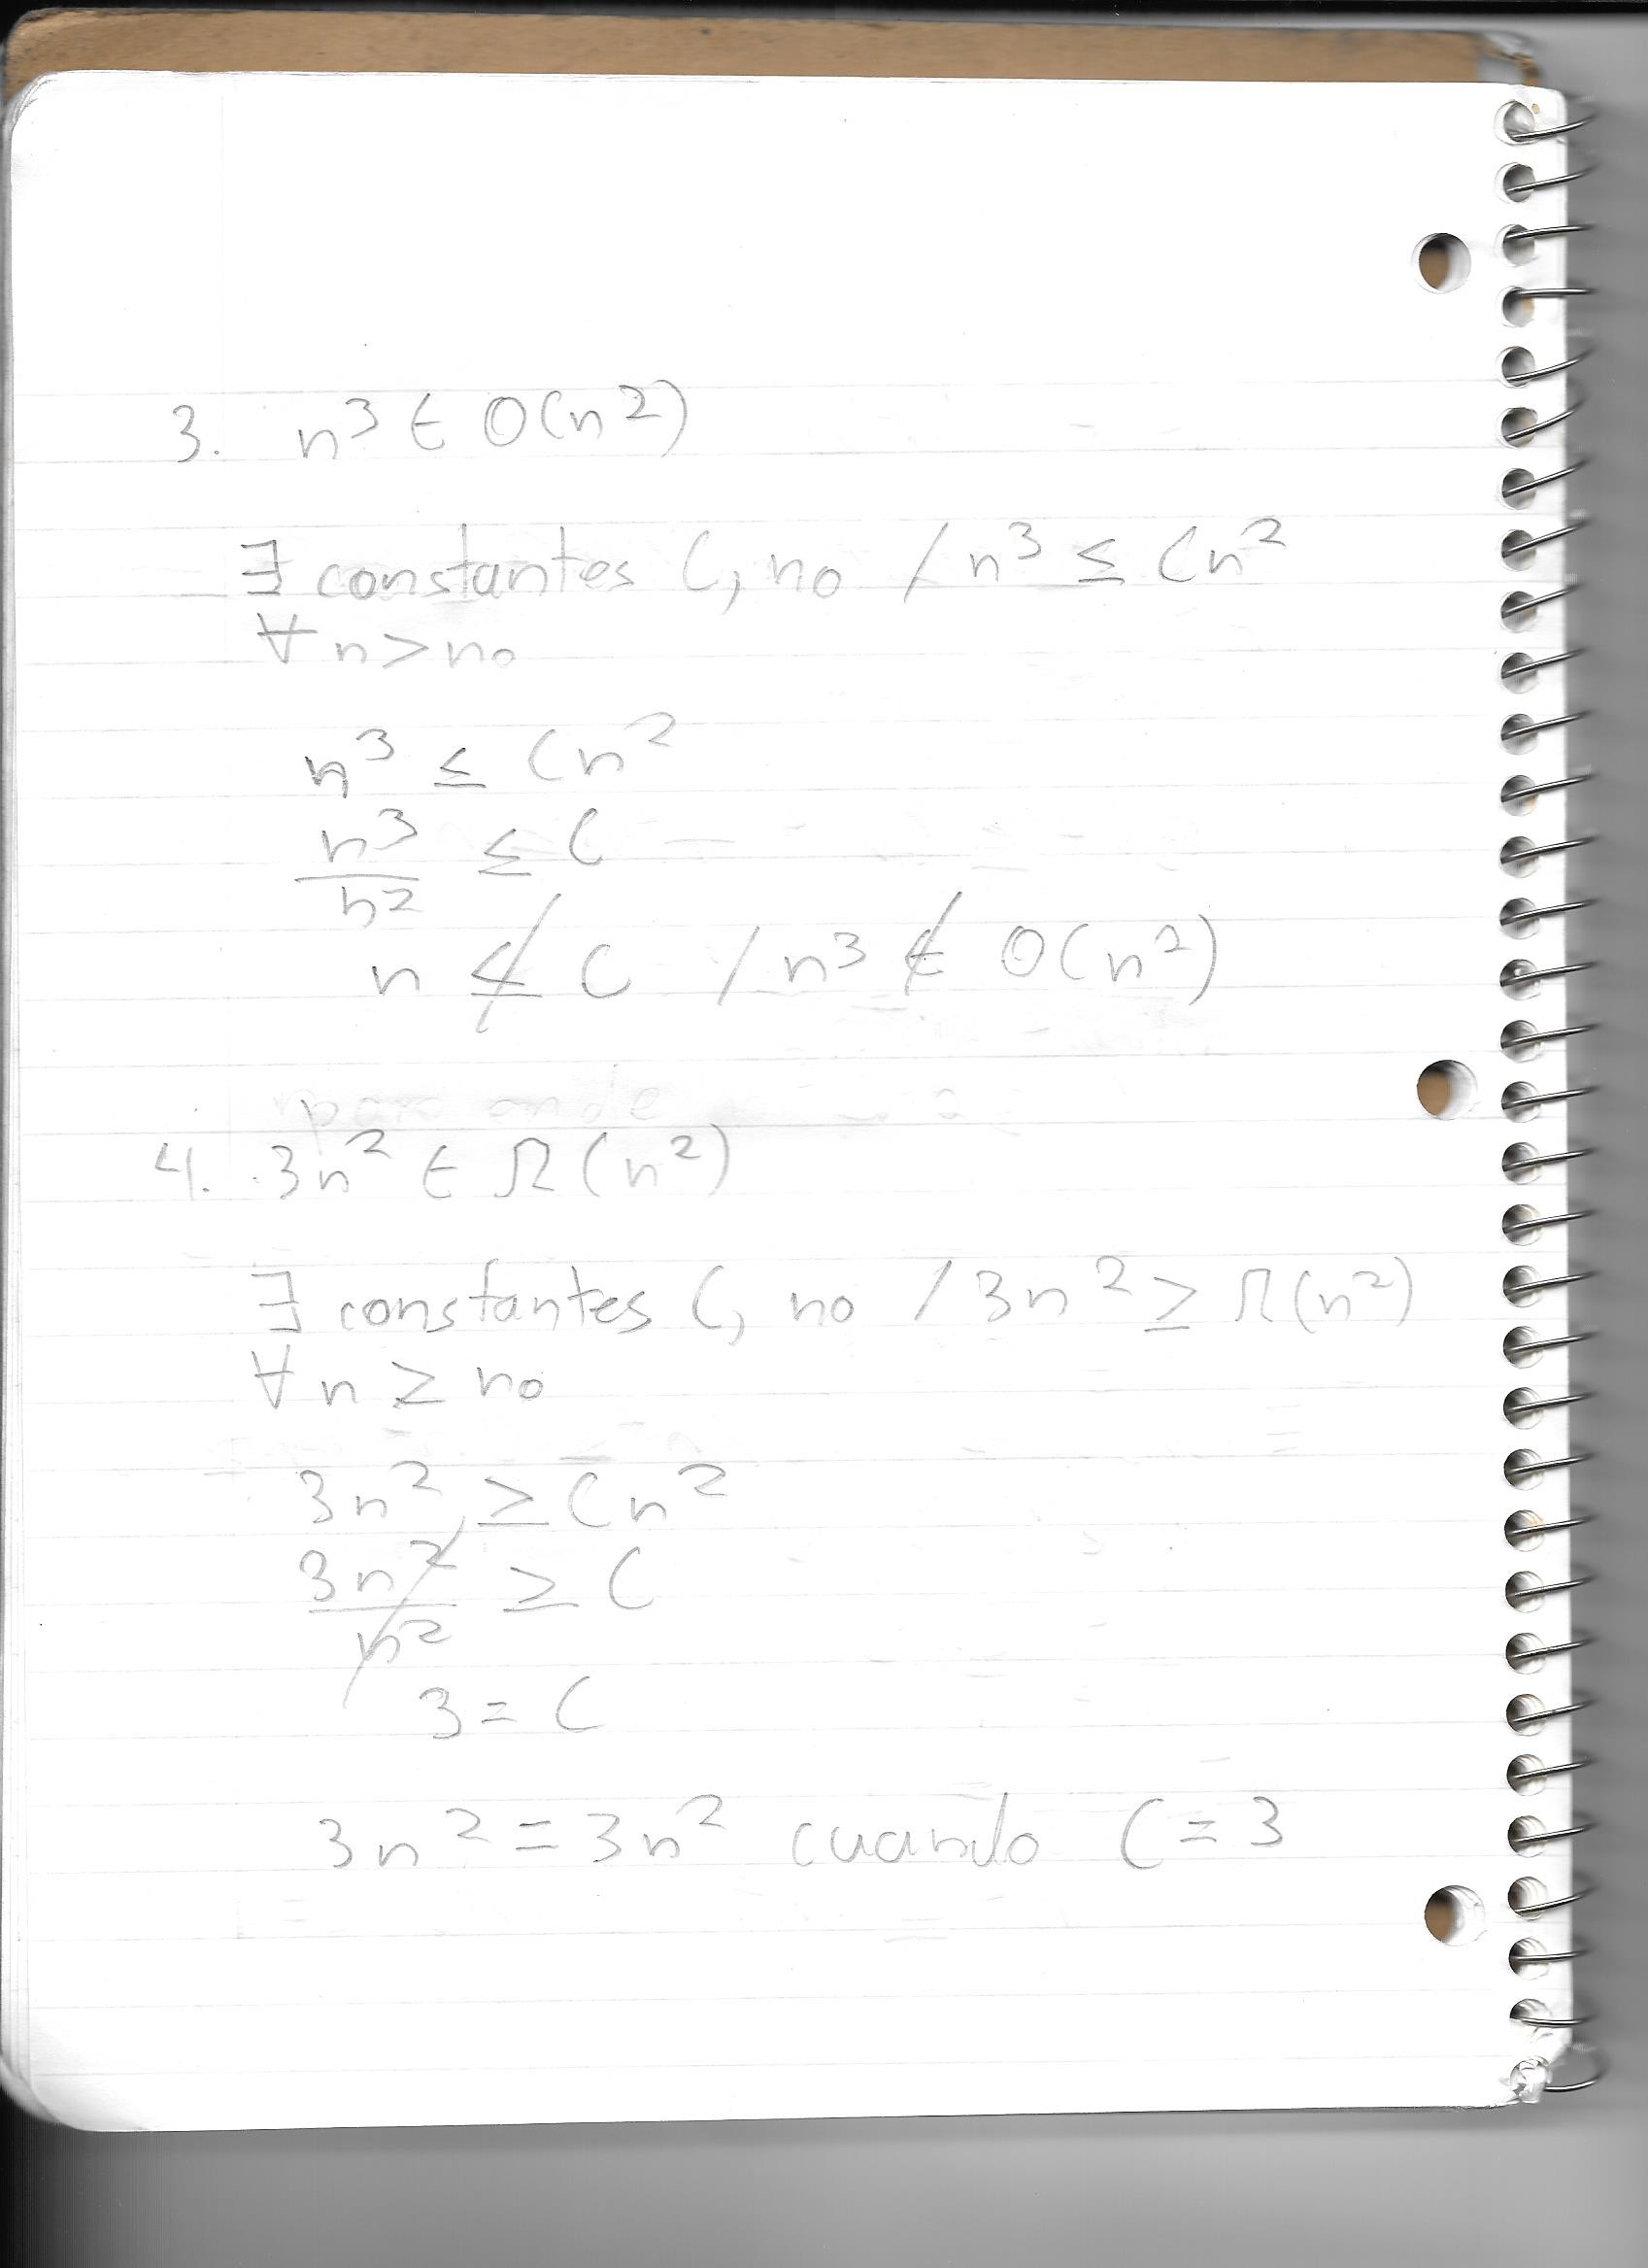 3. n³ ∈ O(n²)
∃ constantes C, no / n³ ≤ Cn²
∀ n > no
n³ ≤ Cn²
n³/n² ≤ C
n ≰ C / n³ ∉ O(n²)
4. 3n² ∈ Ω(n²)
∃ constantes C, no / 3n² ≥ Ω(n²)
∀ n ≥ no
3n² ≥ Cn²
3n²/n² ≥ C
3 = C
3n² = 3n² cuando C = 3